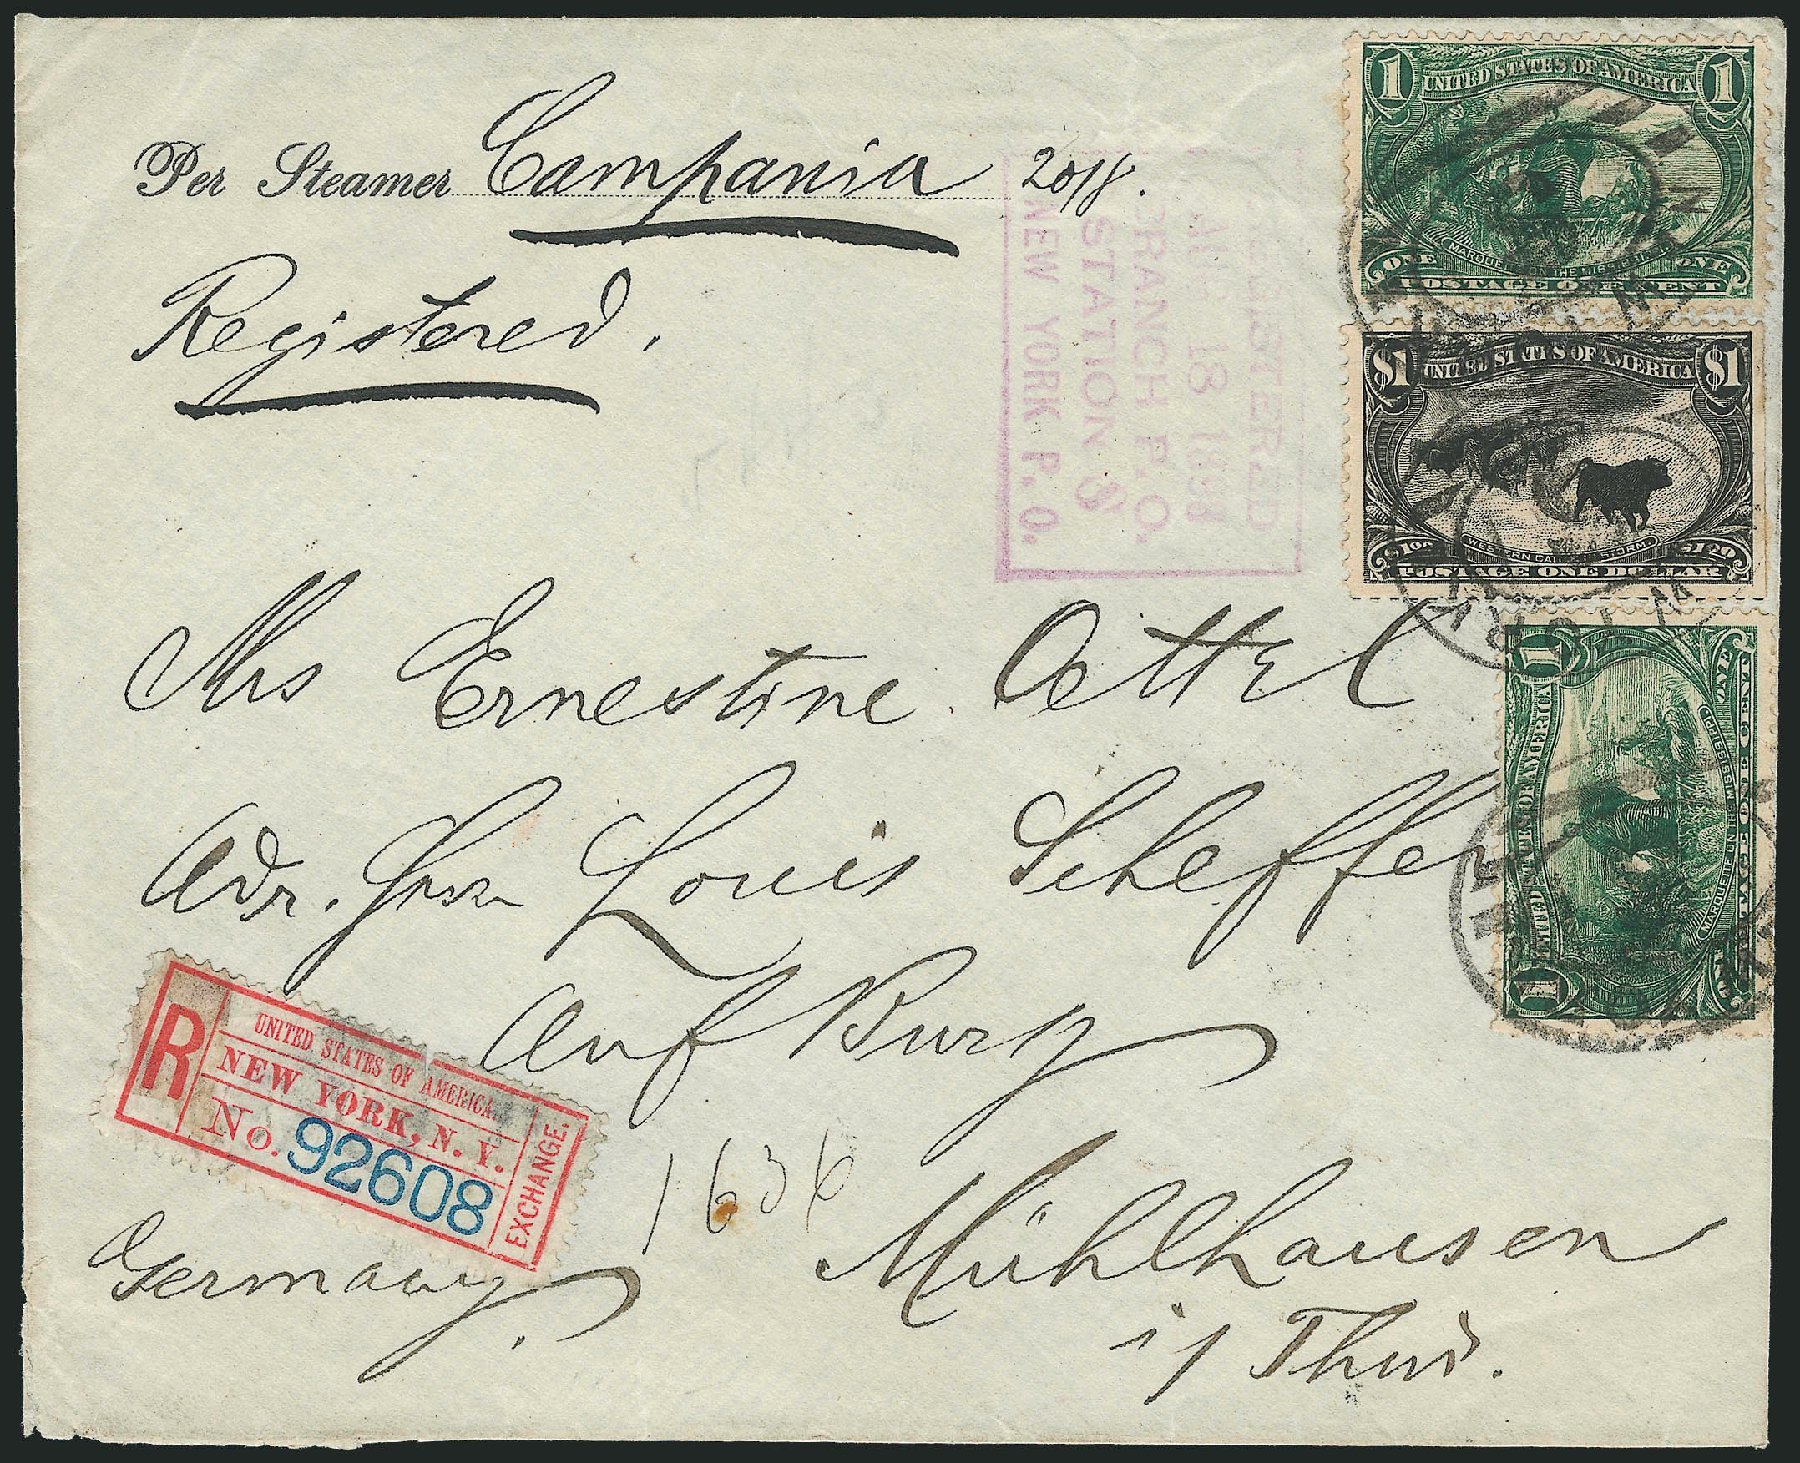 Per Steamer Campania 20/8.
Registered.
REGISTERED
AUG 18 1898
BRANCH P.O.
STATION
NEW YORK P.O.
1 UNITED STATES OF AMERICA 1
MARQUETTE ON THE MISSISSIPPI
ONE ONE
POSTAGE ONE CENT
$1 UNITED STATES OF AMERICA $1
WESTERN CATTLE IN STORM.
POSTAGE ONE DOLLAR
1 UNITED STATES OF AMERICA 1
MARQUETTE ON THE MISSISSIPPI
ONE ONE
POSTAGE ONE CENT
Mrs Ernestine Oettel
Adr. Louis Scheffer
Auf Burg
R
UNITED STATES OF AMERICA.
NEW YORK, N. Y.
No. 92608
EXCHANGE.
1636
Mühlhausen
Germany.
i/ Thür.